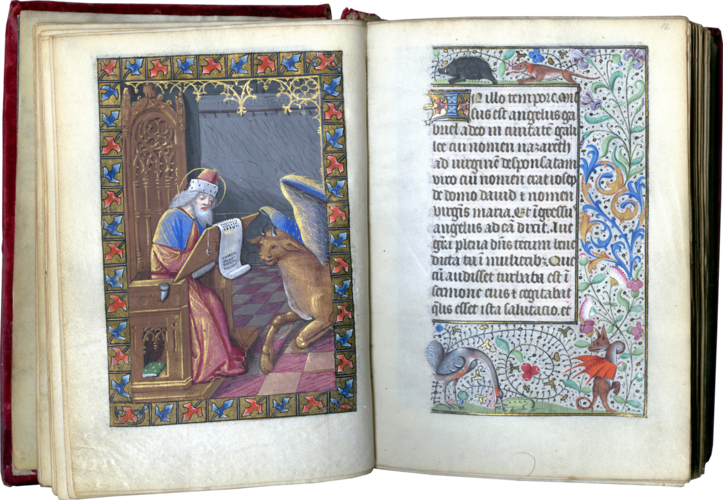 16.
In illo tempore mis
sus est angelus ga
briel a deo in civitatē gali
lee cui nomen nazareth
ad virginē desponsatam
viro cui nomen erat iosep
de domo david et nomen
virginis maria. Et īgressus
angelus ad eā dixit. Aue
gr̄a plena dn̄s tecum bene
dicta tu ī mulieribꝫ. Que
cū audisset turbata est ī
sermone eius ⁊ cogitabat
qualis esset ista salutacio. et